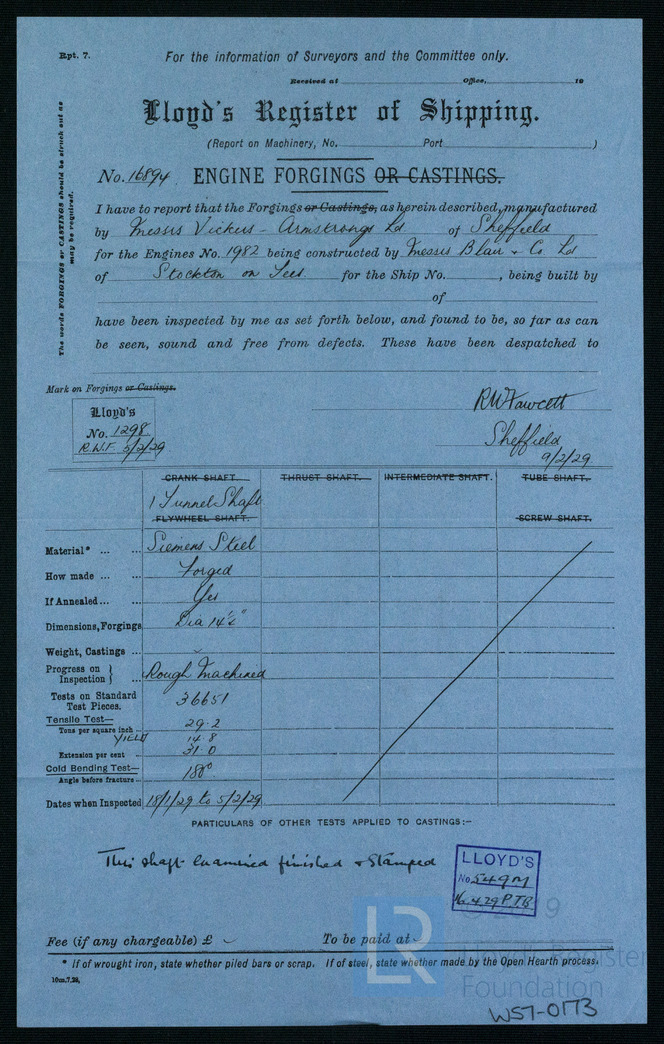 Rpt. 7.
For the information of Surveyors and the Committee only.
Received at Office, 19
Lloyd's Register of Shipping.
(Report on Machinery, No. Port )
No. 16894 ENGINE FORGINGS OR CASTINGS.
The words FORGINGS or CASTINGS should be struck out as
may be required.
I have to report that the Forgings or Castings, as herein described, manufactured
by Messrs Vickers-Armstrongs Ld of Sheffield
for the Engines No. 1982 being constructed by Messrs Blair & Co Ld
of Stockton on Tees for the Ship No. , being built by
of
have been inspected by me as set forth below, and found to be, so far as can
be seen, sound and free from defects. These have been despatched to
Mark on Forgings or Castings.
Lloyd's
No. 1298
R.W.F. 5/2/29
RWFawcett
Sheffield
9/2/29
CRANK SHAFT. THRUST SHAFT. INTERMEDIATE SHAFT. TUBE SHAFT.
1 Tunnel Shaft
FLYWHEEL SHAFT. SCREW SHAFT.
Material* ... ... Siemens Steel
How made ... ... Forged
If Annealed ... ... Yes
Dimensions, Forgings Dia 14½"
Weight, Castings ...
Progress on Inspection } ... Rough Machined
Tests on Standard Test Pieces. 36651
Tensile Test—
Tons per square inch 29.2
YIELD 14.8
Extension per cent 31.0
Cold Bending Test—
Angle before fracture 180°
Dates when Inspected 18/1/29 to 5/2/29
PARTICULARS OF OTHER TESTS APPLIED TO CASTINGS:—
This shaft examined finished & Stamped
LLOYD'S
No 549M
16.4.29 P.T.B
© 2019
LR
Lloyd's Register
Foundation
Fee (if any chargeable) £ To be paid at
* If of wrought iron, state whether piled bars or scrap. If of steel, state whether made by the Open Hearth process.
10m,7,28,
W57-0173